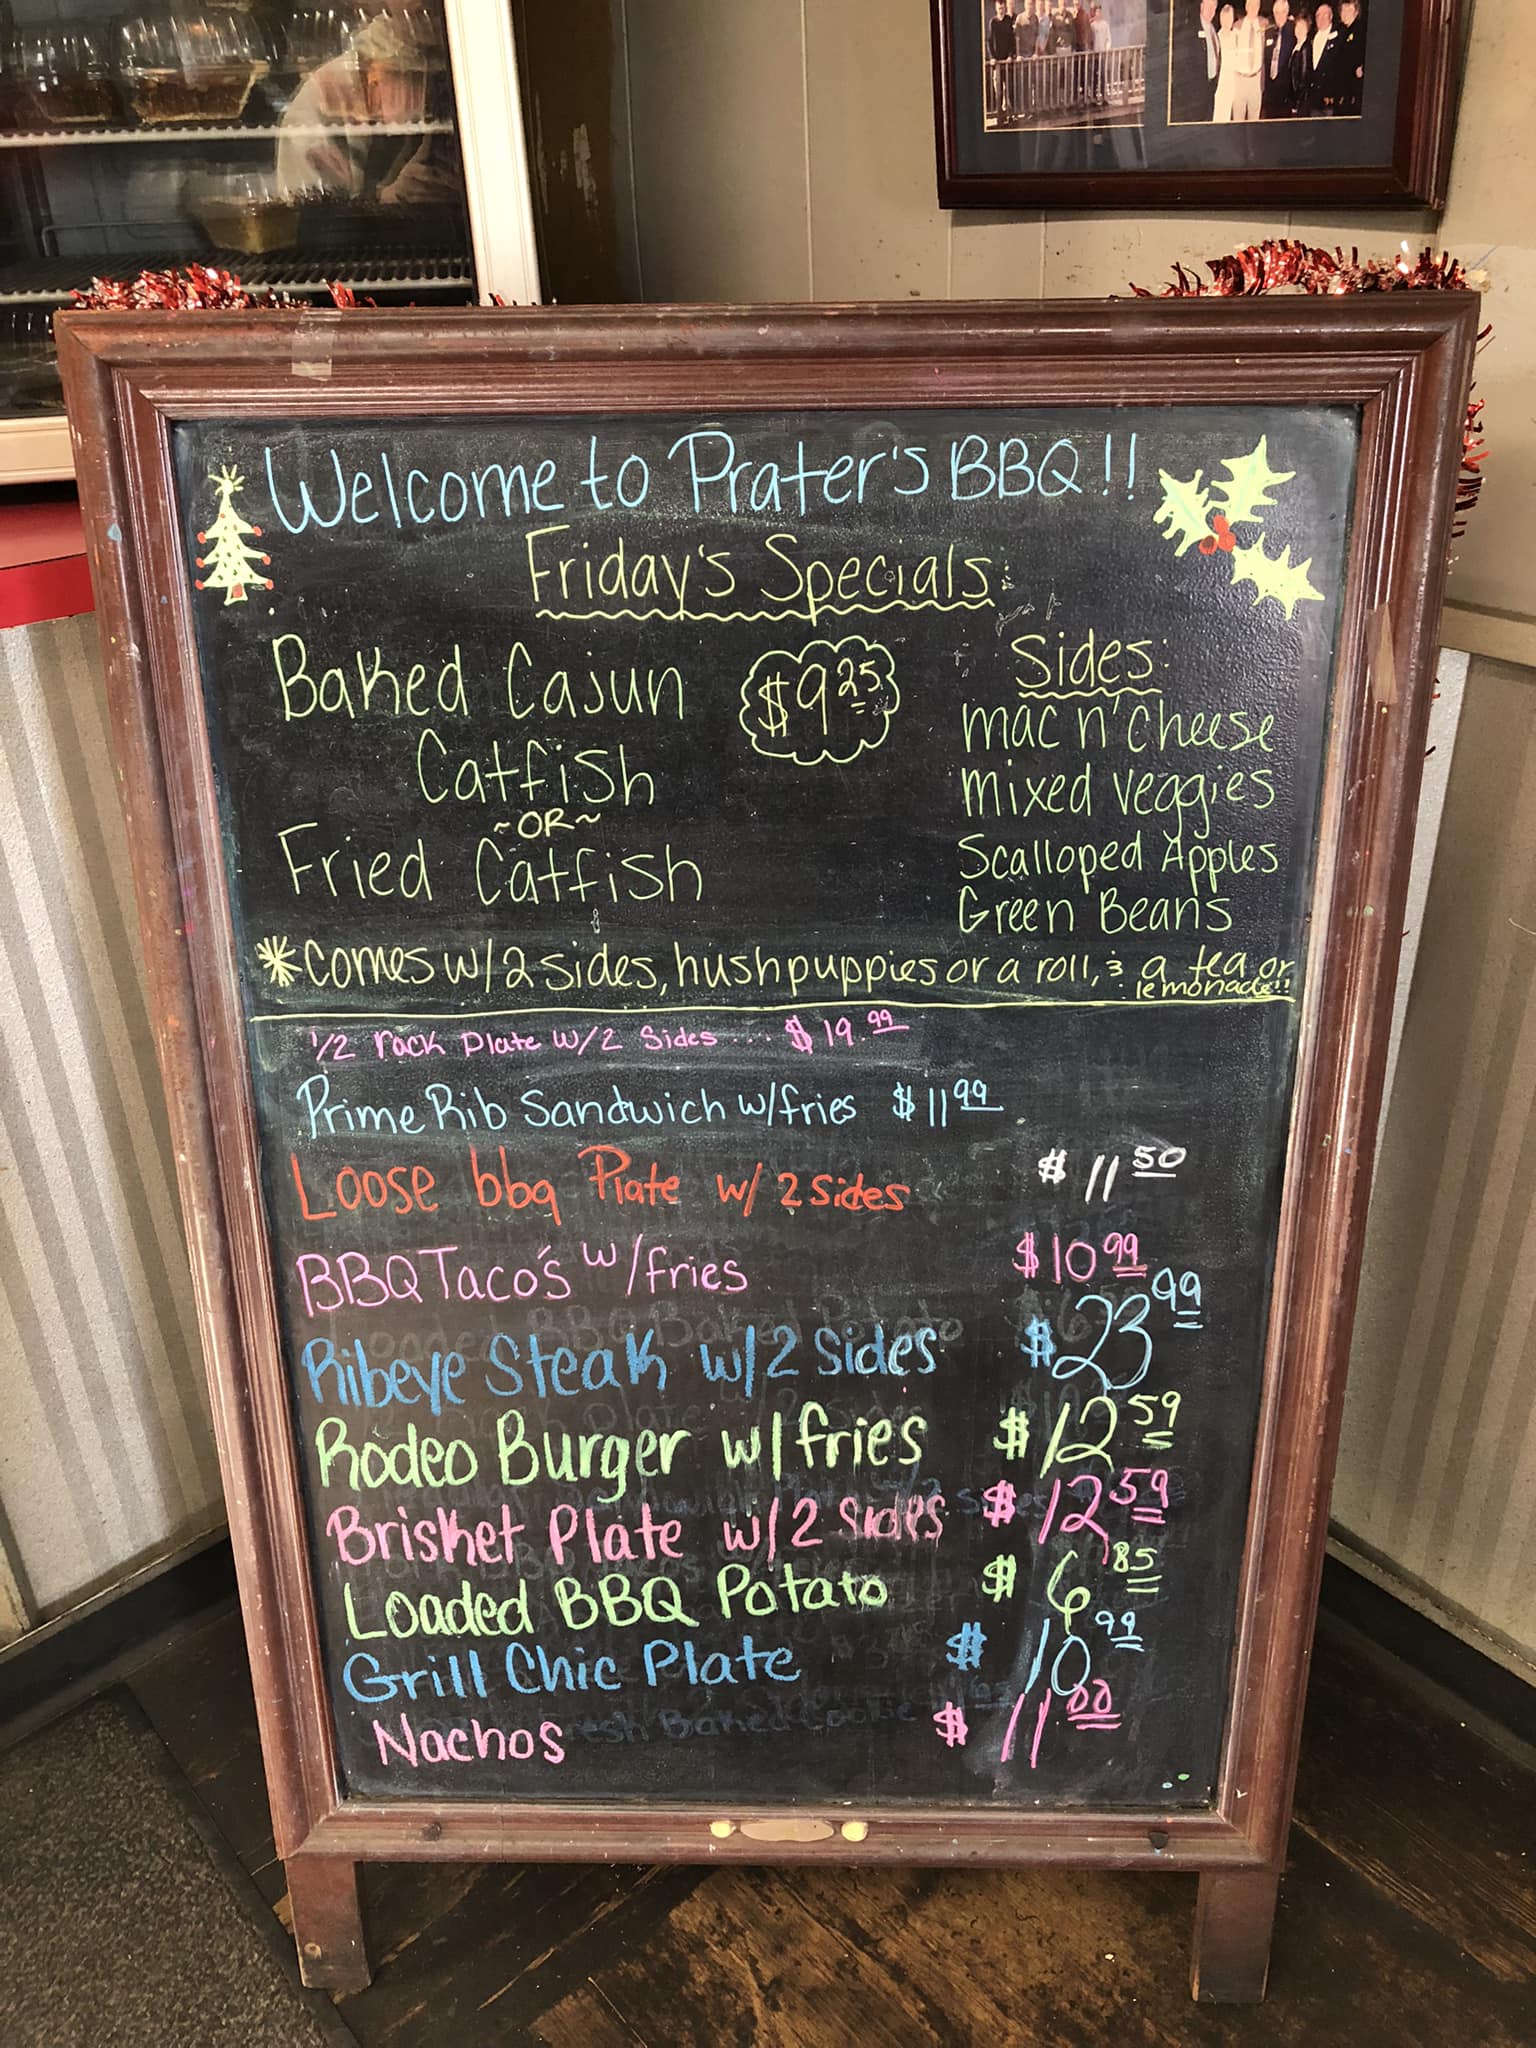 Welcome to Prater's BBQ!!
Friday's Specials:
Baked Cajun
Catfish
~OR~
Fried Catfish
$9.25
Sides:
mac n' cheese
mixed veggies
Scalloped Apples
Green Beans
*comes w/2 sides, hushpuppies or a roll, & a tea or
lemonade!!
1/2 rack plate w/2 Sides .... $19.99
Prime Rib Sandwich w/fries $11.99
Loose bbq Plate w/ 2 Sides $11.50
BBQ Taco's w/fries $10.99
Ribeye Steak w/2 sides $23.99
Rodeo Burger w/fries $12.59
Brisket Plate w/2 sides $12.59
Loaded BBQ Potato $6.85
Grill Chic Plate $10.99
Nachos $11.00